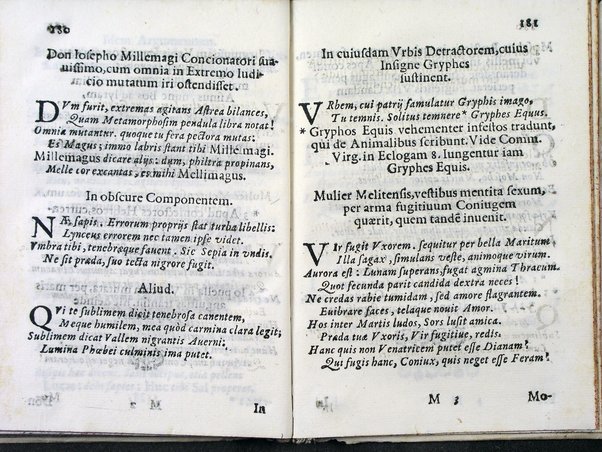 180
Don Iosepho Millemagi Concionatori sua-
uissimo, cum omnia in Extremo Iudi-
cio mutatum iri ostendisset.
DVm furit, extremas agitans Astrea bilances,
Quam Metamorphosim pendula libra notat!
Omnia mutantur. quoque tu fera pectora mutas:
Es Magus; immo labris stant tibi Mille magi.
Millemagus dicare alys: dum, philtra propinans,
Melle cor excantas, es mihi Mellimagus.
In obscure Componentem.
NAE sapis. Errorum proprijs stat turba libellis:
Lynceus errorem nec tamen ipse videt.
Vmbra tibi, tenebræque fauent. Sic Sepia in vndis.
Ne sit præda, suo tecta nigrore fugit.
Aliud.
QVi te sublimem dicit tenebrosa canentem,
Meque humilem, mea quòd carmina clara legit;
Sublimem dicat Vallem nigrantis Auerni:
Lumina Phœbei culminis ima putet.
M 2 In
181
In cuiusdam Vrbis Detractorem, cuius
Insigne Gryphes
sustinent.
VRbem, cui patrij famulatur Gryphis imago,
Tu temnis. Solitus temnere * Gryphes Equus.
* Gryphos Equis vehementer infestos tradunt,
qui de Animalibus scribunt. Vide Comm.
Virg. in Eclogam 8. Iungentur iam
Gryphes Equis.
Mulier Melitensis, vestibus mentita sexum,
per arma fugitiuum Coniugem
quærit, quem tandē inuenit.
VIr fugit Vxorem. sequitur per bella Maritum
Illa sagax, simulans veste, animoque virum.
Aurora est: Lunam superans, fugat agmina Thracum.
Quot fecunda parit candida dextra neces!
Ne credas rabie tumidam, sed amore flagrantem.
Euibrare faces, telaque nouit Amor.
Hos inter Martis ludos, Sors lusit amica.
Præda tuæ Vxoris, Vir fugitiue, redis.
Hanc quis non Venatricem putet esse Dianam?
Qui fugis hanc, Coniux, quis neget esse Feram?
M 3 Mo-